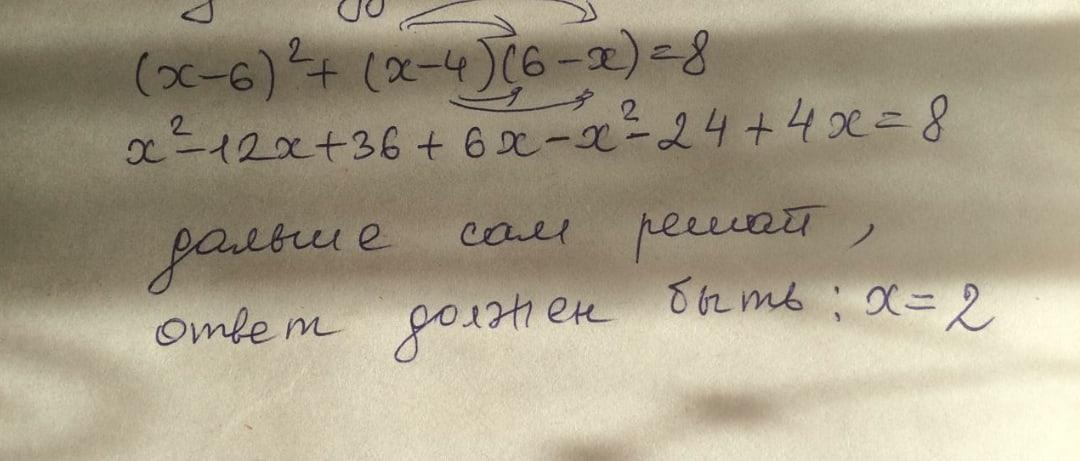 (x-6)²+ (x-4)(6-x)=8
x²-12x+36+6x-x²-24+4x=8
дальше сам решай,
ответ должен быть: x=2